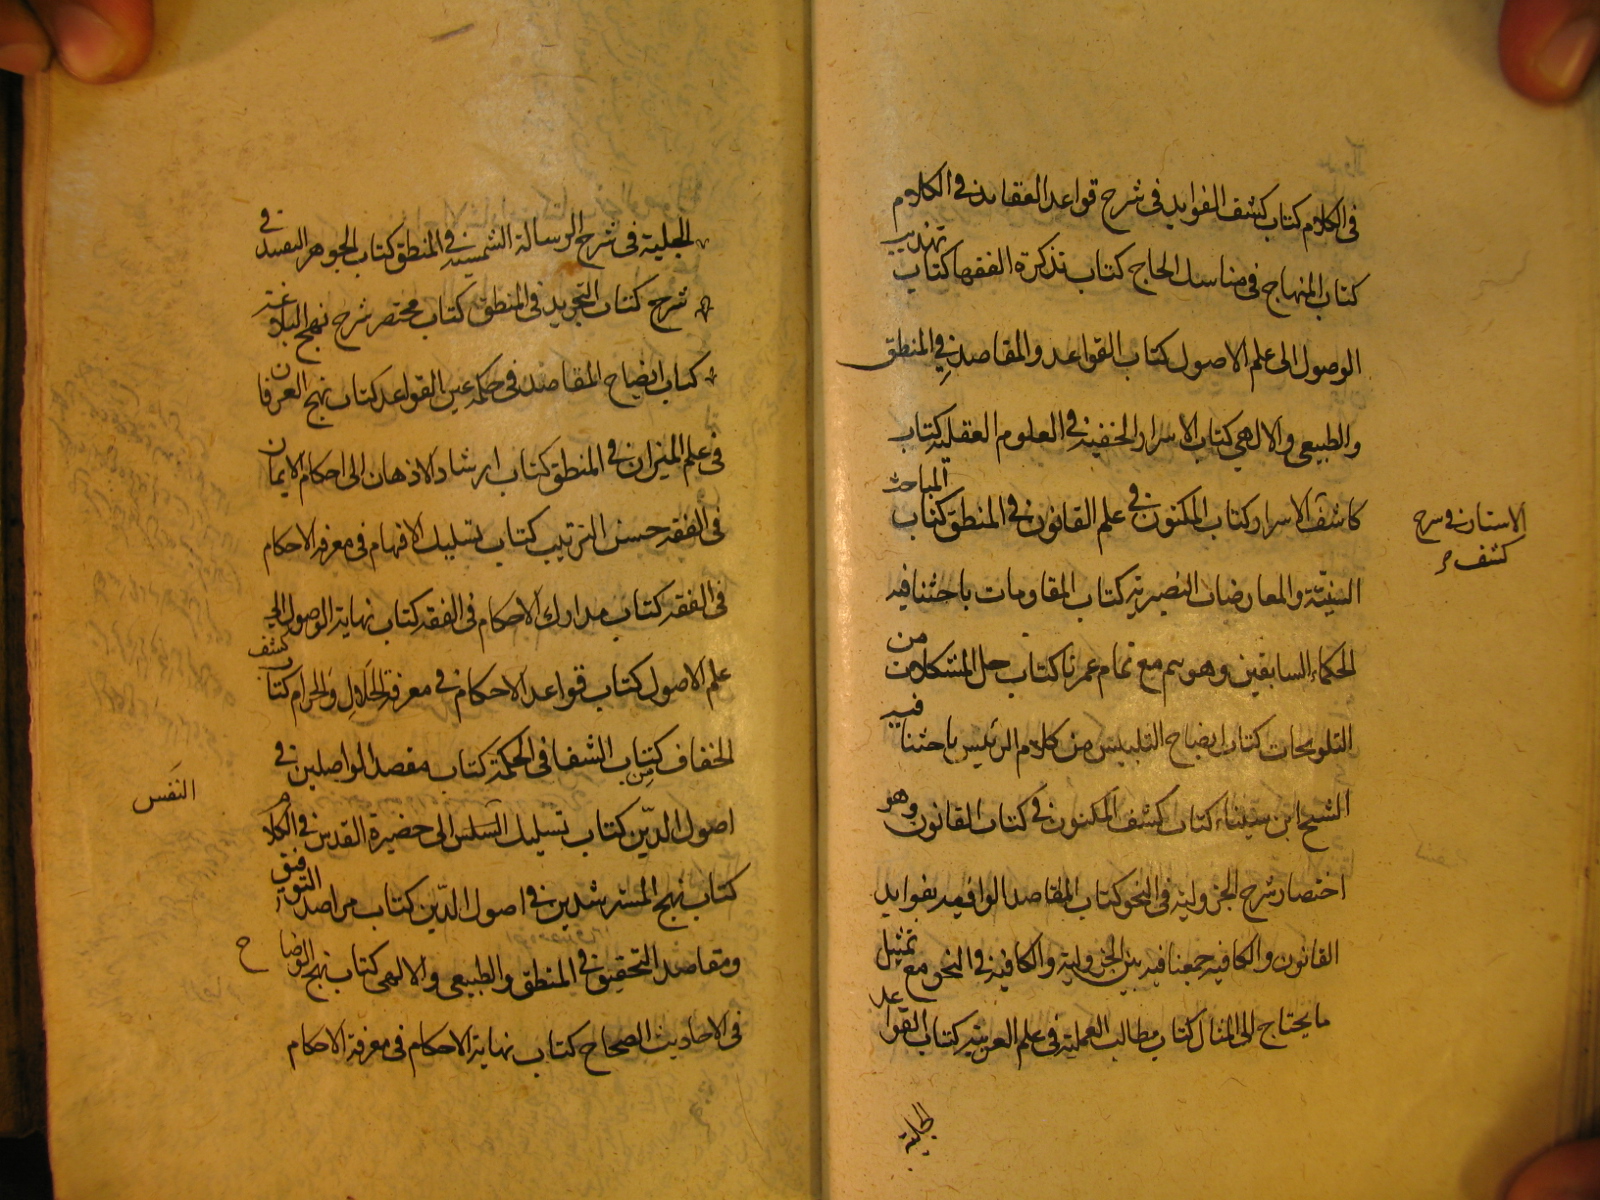 فى الكلام كتاب كشف الفوايد فى شرح قواعد العقايد فى الكلام
كتاب المنهاج فى مناسك الحاج كتاب تذكرة الفقها كتاب تهذيب
الوصول الى علم الاصول كتاب القواعد والمقاصد فى المنطق
والطبيعى والالهي كتاب الاسرار الخفيه فى العلوم العقليه كتاب
كاشف الاسرار كتاب المكنون فى علم القانون فى المنطق كتاب المباحث
السنيّة والمعارضات النصيرية كتاب المقاومات باحثنا فيه
الحكماء السابقين وهو يتم مع تمام عمرنا كتاب حل المشكلات من
التلويحات كتاب ايضاح التلبيس من كلام الرئيس باحثنا فيه
الشيخ ابن سيناء كتاب كشف المكنون فى كتاب القانون وهو
اختصار شرح الجزولية فى النحو كتاب المقاصد الوافيه بفوايد
القانون والكافيه جمعنا فيه بين الجزولية والكافية فى النحو مع تمثيل
ما يحتاج الى المثال كتاب مطالب العملية فى علم العربية كتاب القواعد
الجلية
الاستار فى شرح
كشف
الجلية فى شرح الرسالة الشمسية فى المنطق كتاب الجوهر النضيد فى
شرح كتاب التجريد فى المنطق كتاب مختصر شرح نهج البلاغة
كتاب ايضاح المقاصد فى حكمة عين القواعد كتاب نهج العرفان
فى علم الميزان فى المنطق كتاب ارشاد الاذهان الى احكام الايمان
فى الفقه حسن الترتيب كتاب تسليك الافهام فى معرفة الاحكام
فى الفقه كتاب مدارك الاحكام فى الفقه كتاب نهاية الوصول الى
علم الاصول كتاب قواعد الاحكام فى معرفة الحلال والحرام كتاب كشف
الخفاف من كتاب الشفا فى الحكمة كتاب مقصد الواصلين فى
اصول الدّين كتاب تسليك السلس الى حضيرة القدس فى الكلام
كتاب نهج المسترشدين فى اصول الدّين كتاب مراصد التوفيق
ومقاصد التحقيق فى المنطق والطبيعى والالهى كتاب نهج الوضاح
فى الاحاديث الصحاح كتاب نهاية الاحكام فى معرفة الاحكام
النَفس
ح